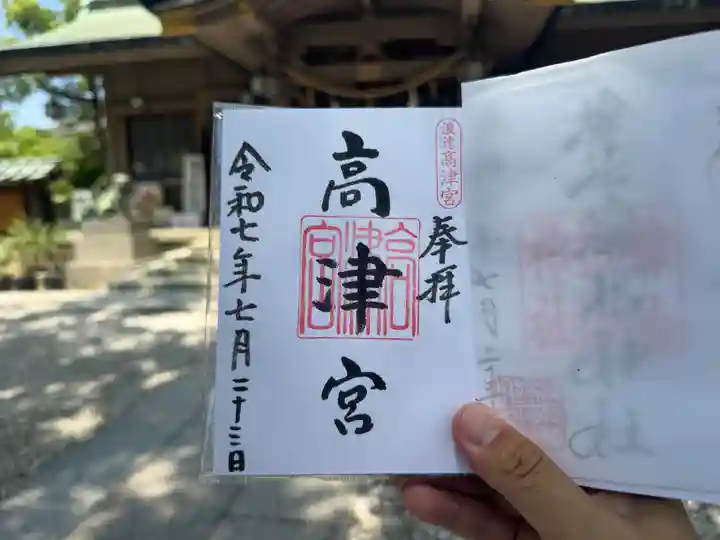 浪速高津宮
奉拝
高津宮
高津宮
令和七年七月二十三日
七月二十